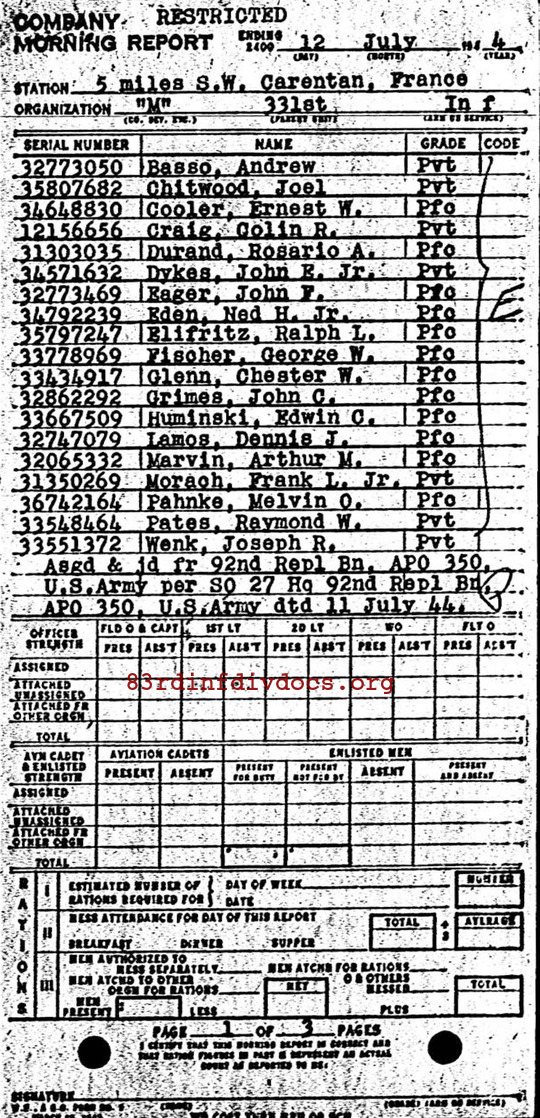 COMPANY RESTRICTED
MORNING REPORT ENDING 2400 12 July 194 4
(DAY) (MONTH) (YEAR)
STATION 5 miles S.W. Carentan, France
ORGANIZATION "M" 331st Inf
(CO. DET. ETC.) (PARENT UNIT) (ARM OR SERVICE)
SERIAL NUMBER NAME GRADE CODE
32773050 Basso, Andrew Pvt
35807682 Chitwood, Joel Pvt
34648830 Cooler, Ernest W. Pfc
12156656 Craig, Colin R. Pvt
31303035 Durand, Rosario A. Pfc
34571632 Dykes, John E. Jr. Pvt
32773469 Eager, John F. Pfc
34792239 Eden, Ned H. Jr. Pfc
35797247 Elifritz, Ralph L. Pfc
33778969 Fischer, George W. Pfc
33434917 Glenn, Chester W. Pfc
32862292 Grimes, John C. Pfc
33667509 Huminski, Edwin C. Pfc
32747079 Lamos, Dennis J. Pfc
32065332 Marvin, Arthur M. Pfc
31350269 Morach, Frank L. Jr. Pvt
36742164 Pahnke, Melvin O. Pfc
33548464 Pates, Raymond W. Pvt
33551372 Wenk, Joseph R. Pvt
Asgd & jd fr 92nd Repl Bn, APO 350,
U.S.Army per SO 27 Hq 92nd Repl Bn,
APO 350, U.S.Army dtd 11 July 44.
OFFICER STRENGTH FLD O & CAPT 1ST LT 2D LT WO FLT O
PRES ABS'T PRES ABS'T PRES ABS'T PRES ABS'T PRES ABS'T
ASSIGNED
83rdinfdivdocs.org
ATTACHED UNASSIGNED
ATTACHED FR OTHER ORGN
TOTAL
AVN CADET & ENLISTED STRENGTH AVIATION CADETS ENLISTED MEN
PRESENT ABSENT PRESENT FOR DUTY PRESENT NOT FOR DY ABSENT PRESENT AND ABSENT
ASSIGNED
ATTACHED UNASSIGNED
ATTACHED FR OTHER ORGN
TOTAL
RATIONS
I ESTIMATED NUMBER OF RATIONS REQUIRED FOR DAY OF WEEK DATE NUMBER
II MESS ATTENDANCE FOR DAY OF THIS REPORT TOTAL ÷ 3 AVERAGE
BREAKFAST DINNER SUPPER
III MEN AUTHORIZED TO MESS SEPARATELY MEN ATCHD FOR RATIONS
MEN ATCHD TO OTHER ORGN FOR RATIONS NET O & OTHERS MESSED TOTAL
MEN PRESENT LESS PLUS
PAGE 1 OF 3 PAGES
I CERTIFY THAT THIS MORNING REPORT IS CORRECT AND
THAT RATION FIGURES IN PART III REPRESENT AN ACTUAL
COUNT AS REPORTED TO ME:
SIGNATURE